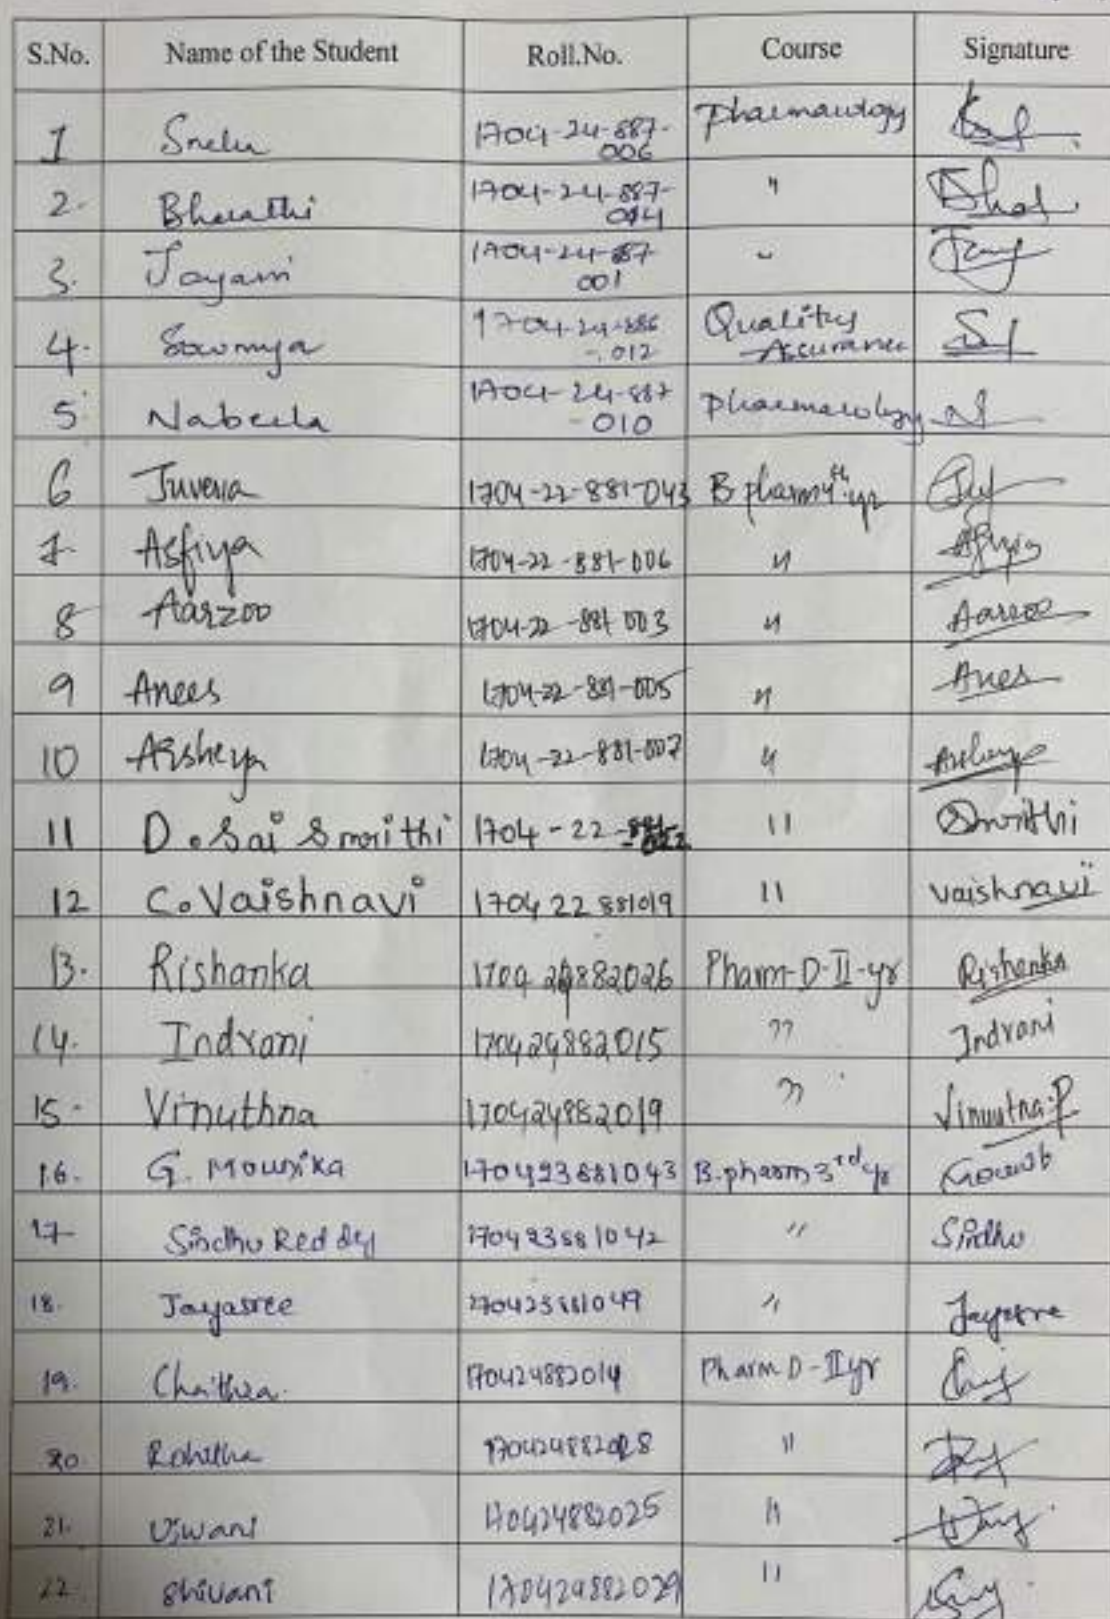 S.No. Name of the Student Roll.No. Course Signature
1 Sneha 1704-24-887-006 Pharmacology
2. Bharathi 1704-24-887-014 " Bhat
3. Jayani 1704-24-887-001 "
4. Sowmya 1704-24-886-012 Quality Assurance
5 Nabeela 1704-24-887-010 Pharmacology
6 Juveria 1704-22-881-043 B pharm 4th yr
7. Asfiya 1704-22-881-006 " Asfiya
8 Aarzoo 1704-22-881-003 " Aarzoo
9 Anees 1704-22-881-005 " Anes
10 Arsheya 1704-22-881-007 "
11 D. Sai Smrithi 1704-22-881-022 11 Smrithi
12 C. Vaishnavi 1704 22 881019 11 Vaishnavi
13. Rishanka 1704 24882026 Pharm-D-II-yr Rishanka
14. Indrani 170424882015 " Indrani
15. Vinuthna 170424882019 " Vinuutna.P
16. G. Mounika 170423881043 B.pharm 3rd yr
17 Sindhu Reddy 170423881042 " Sindhu
18. Jayasree 170423881049 " Jayasree
19. Chaithra 170424882014 Pharm D-II yr
20 Rohitha 170424882028 11
21. Ujwani 170424882025 11
22 Shivani 170424882029 11